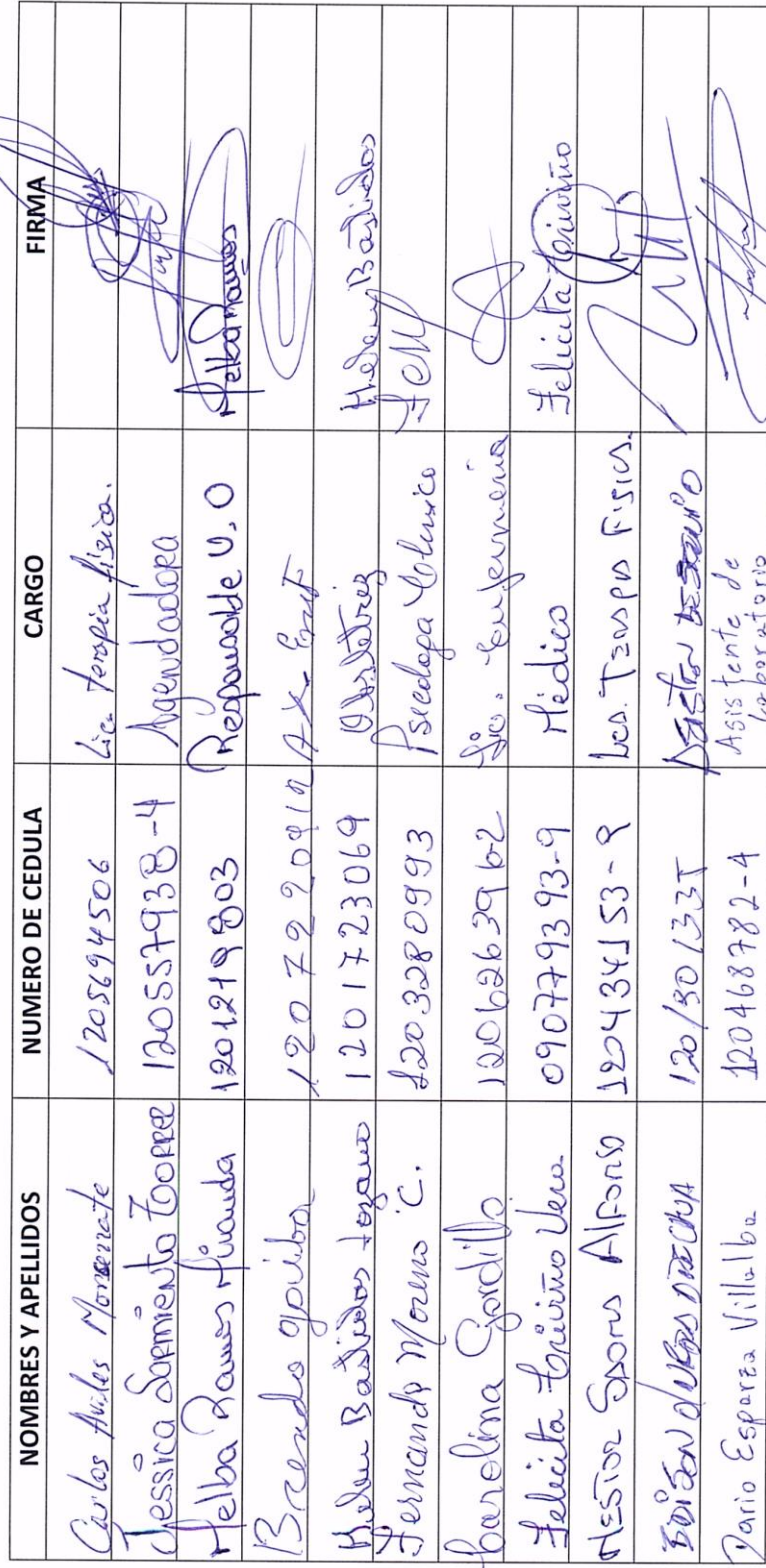 NOMBRES Y APELLIDOS NUMERO DE CEDULA CARGO FIRMA
Carlos Aviles Monserrate 1205694506 Lic. Terapia física.
Jessica Sarmiento Torres 120557938-4 Agendadora
Melba Ramos Miranda 1201219803 Responsable U.O Melba Ramos
Brenda 
Helen Bastidas Lozano 1201723069 Obstetriz Helen Bastidas
Fernando Moreno C. 1203280993 Psicologo Clinico
Carolina Gordillo 120626396-2 Lic. Enfermeria
Felicita Triviño Vera 090779393-9 Médico Felicita Triviño
Alfonso 120434153-9
1201301335
Dario Esparza Villalba 120468782-4 Asistente de
Laboratorio